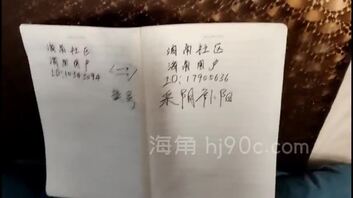 海角社区
海角用户
海角社区
海角用户
ID:17905636
采阴补阳
海角 hj90c.com